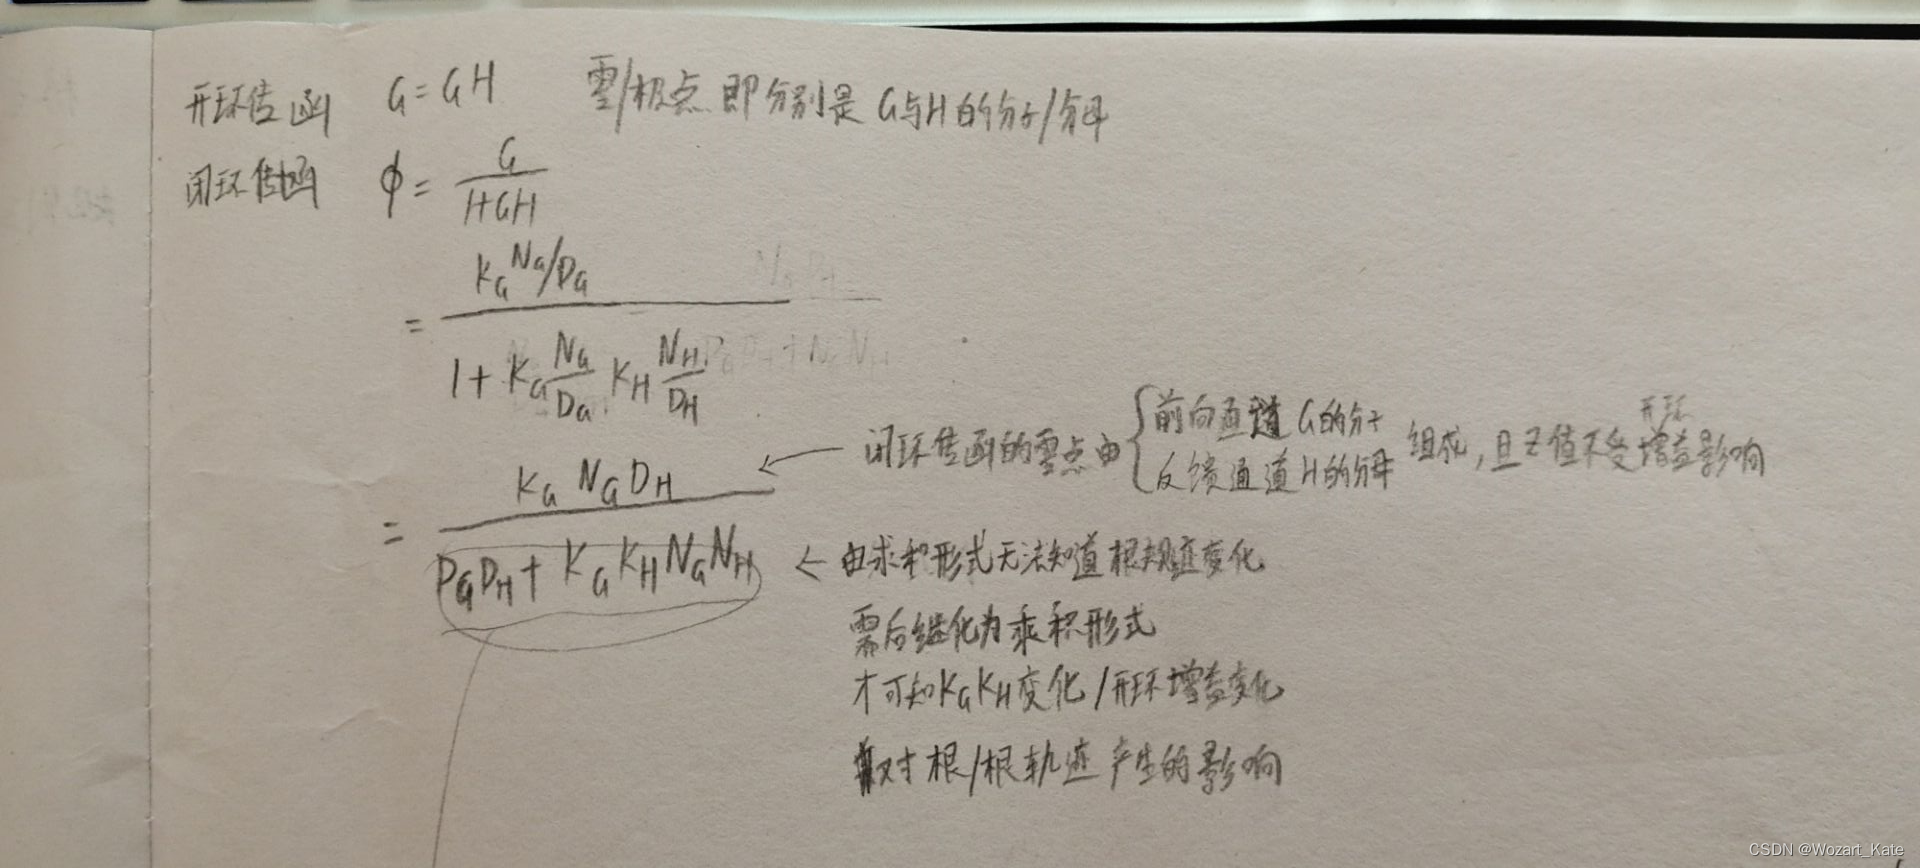 开环传函 G=GH 零/极点 即分别是 G与H的分子/分母
闭环传函 ϕ= G
1+GH
= K_G N_G/D_G
1+K_G N_G/D_G K_H N_H/D_H
= K_G N_G D_H
D_G D_H + K_G K_H N_G N_H
← 闭环传函的零点由 { 前向通道 G的分子
反馈通道 H的分母 组成,且Z值不受开环增益影响
← 由求和形式无法知道根轨迹变化
需后继化为乘积形式
才可知K_G K_H变化/开环增益变化
对根/根轨迹产生的影响
CSDN @Wozart_Kate